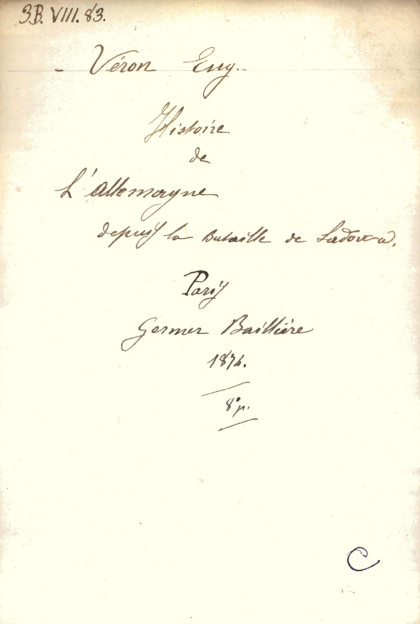 3.B. VIII. 83.
Véron Eug.
Histoire
de
L'Allemagne
depuis la Bataille de Sadowa.
Paris
Germer Baillière
1874.
8° p.
C